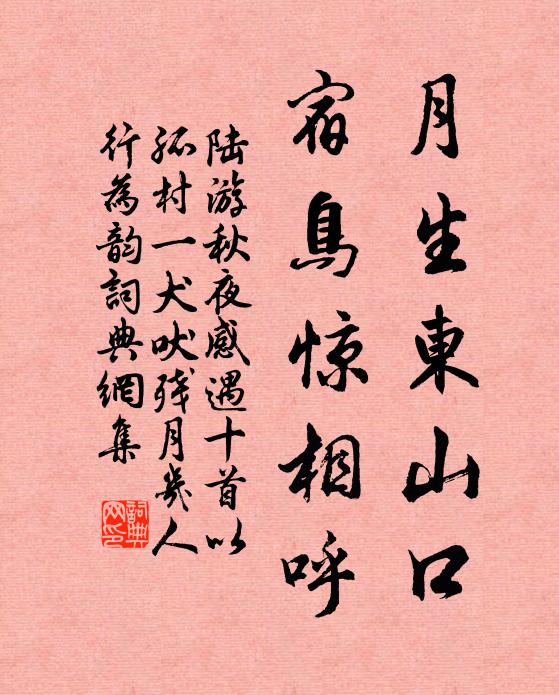 月生東山口
宿鳥惊相呼
陆游秋夜感遇十首以
孤村一犬吠残月幾人
行為韵詞典網集
詞典
网印